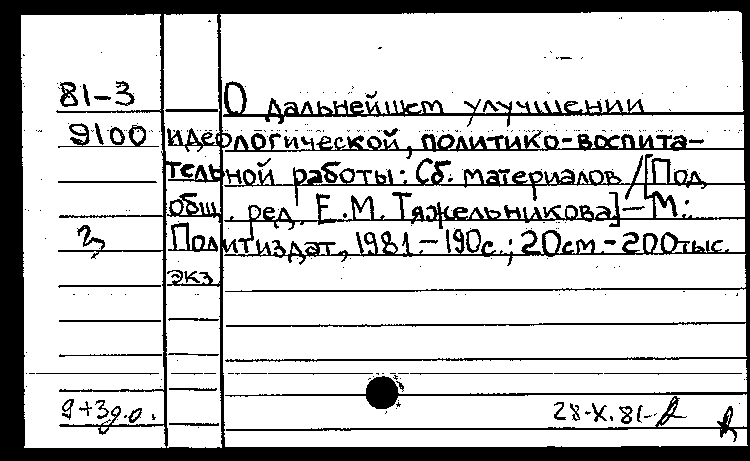 81-3 О дальнейшем улучшении
9100 идеологической, политико-воспита-
тельной работы: Сб. материалов /[Под
общ. ред. Е.М. Тяжельникова]-М.:
Политиздат, 1981.-190с.; 20см.-200тыс.
экз.
9+3д.о. 28-X.81-